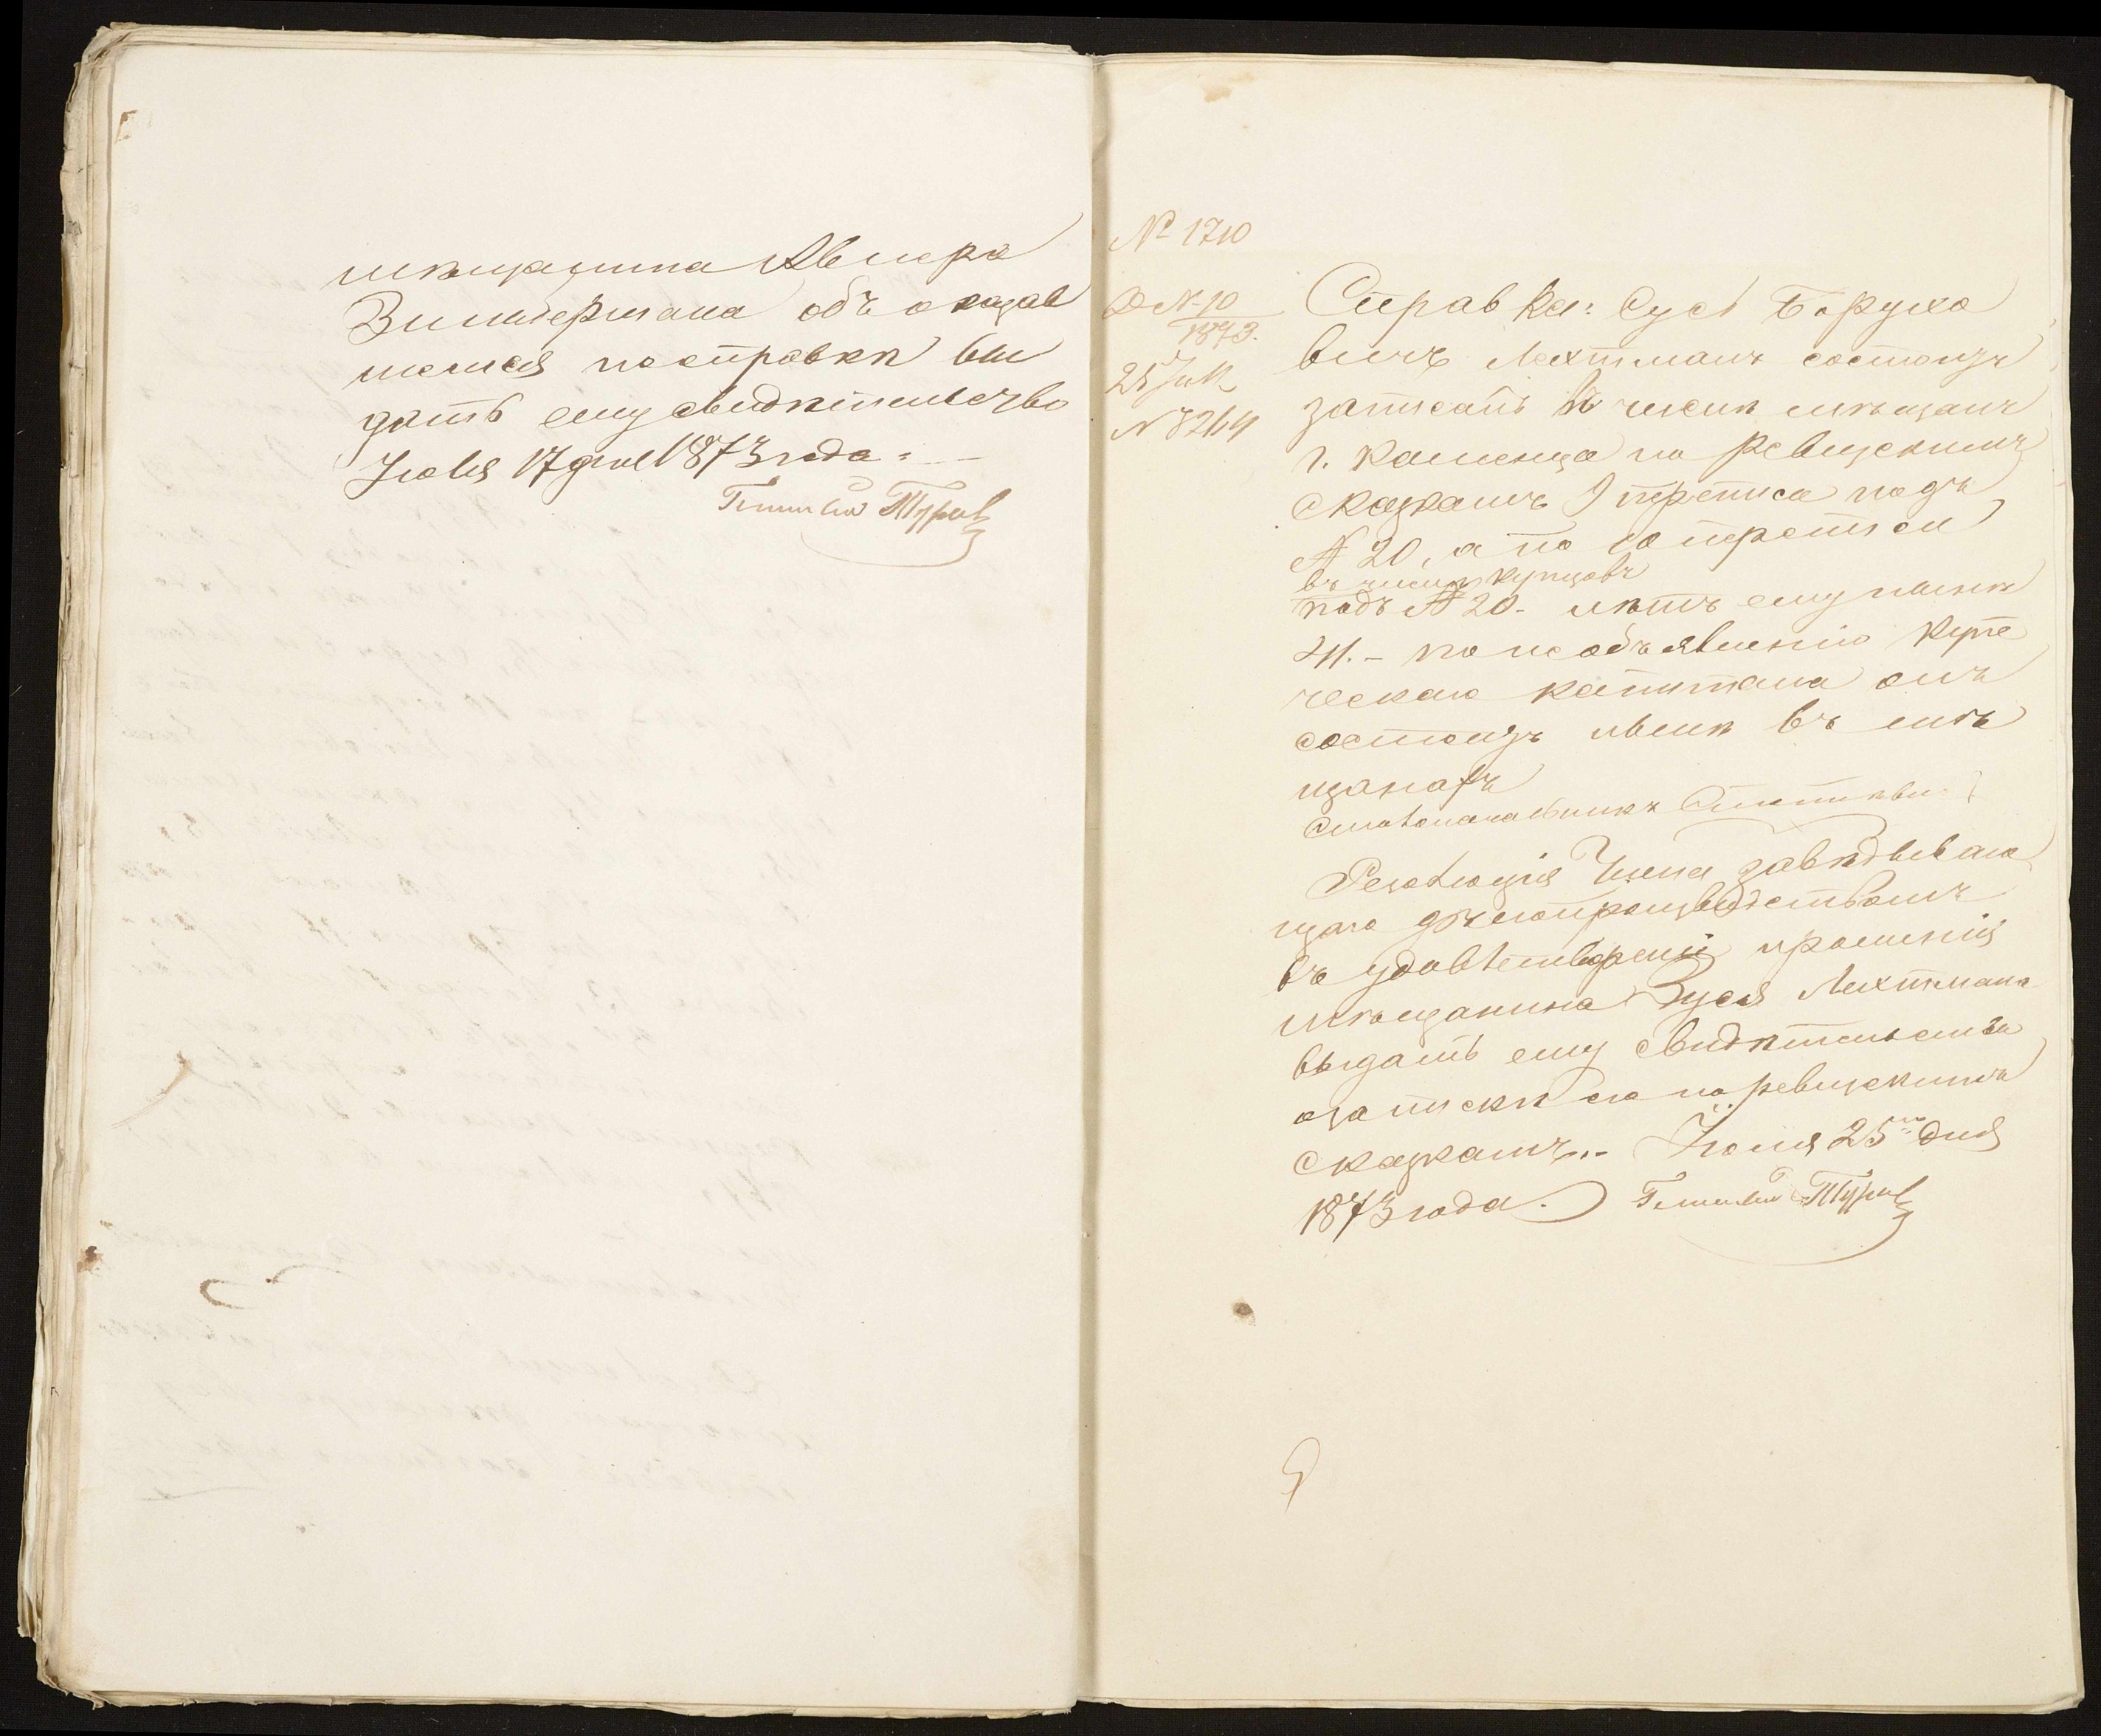 мѣщанина Авмера
Зильбермана объ оказав
шемся посправкѣ вы
дать ему свидѣтельство
Іюля 17 дня 1873 года.
Туров
№ 1710
Д № 10
1873.
25 Іюл
№ 3264
Справка: Сусь Борухо
вичъ Лехтманъ состоитъ
записанъ въ числѣ мѣщанъ
г. Каменца по ревизскимъ
сказкамъ 9 переписи подъ
№ 20, а по 10 переписи
въ числѣ купцовъ
подъ № 20 - лѣтъ ему нынѣ
41. - по необъявленію купе
ческаго капитала онъ
состоитъ нынѣ въ мѣ
щанахъ
Столоначальникъ
Резолюція Члена завѣдываю
щаго дѣлопроизводствомъ
въ удовлетвореніи прошенія
мѣщанина Зуся Лехтмана
выдать ему свидѣтельство
озапискѣ его по ревизскимъ
сказкамъ.- Іюля 25го дня
1873 года. Туров